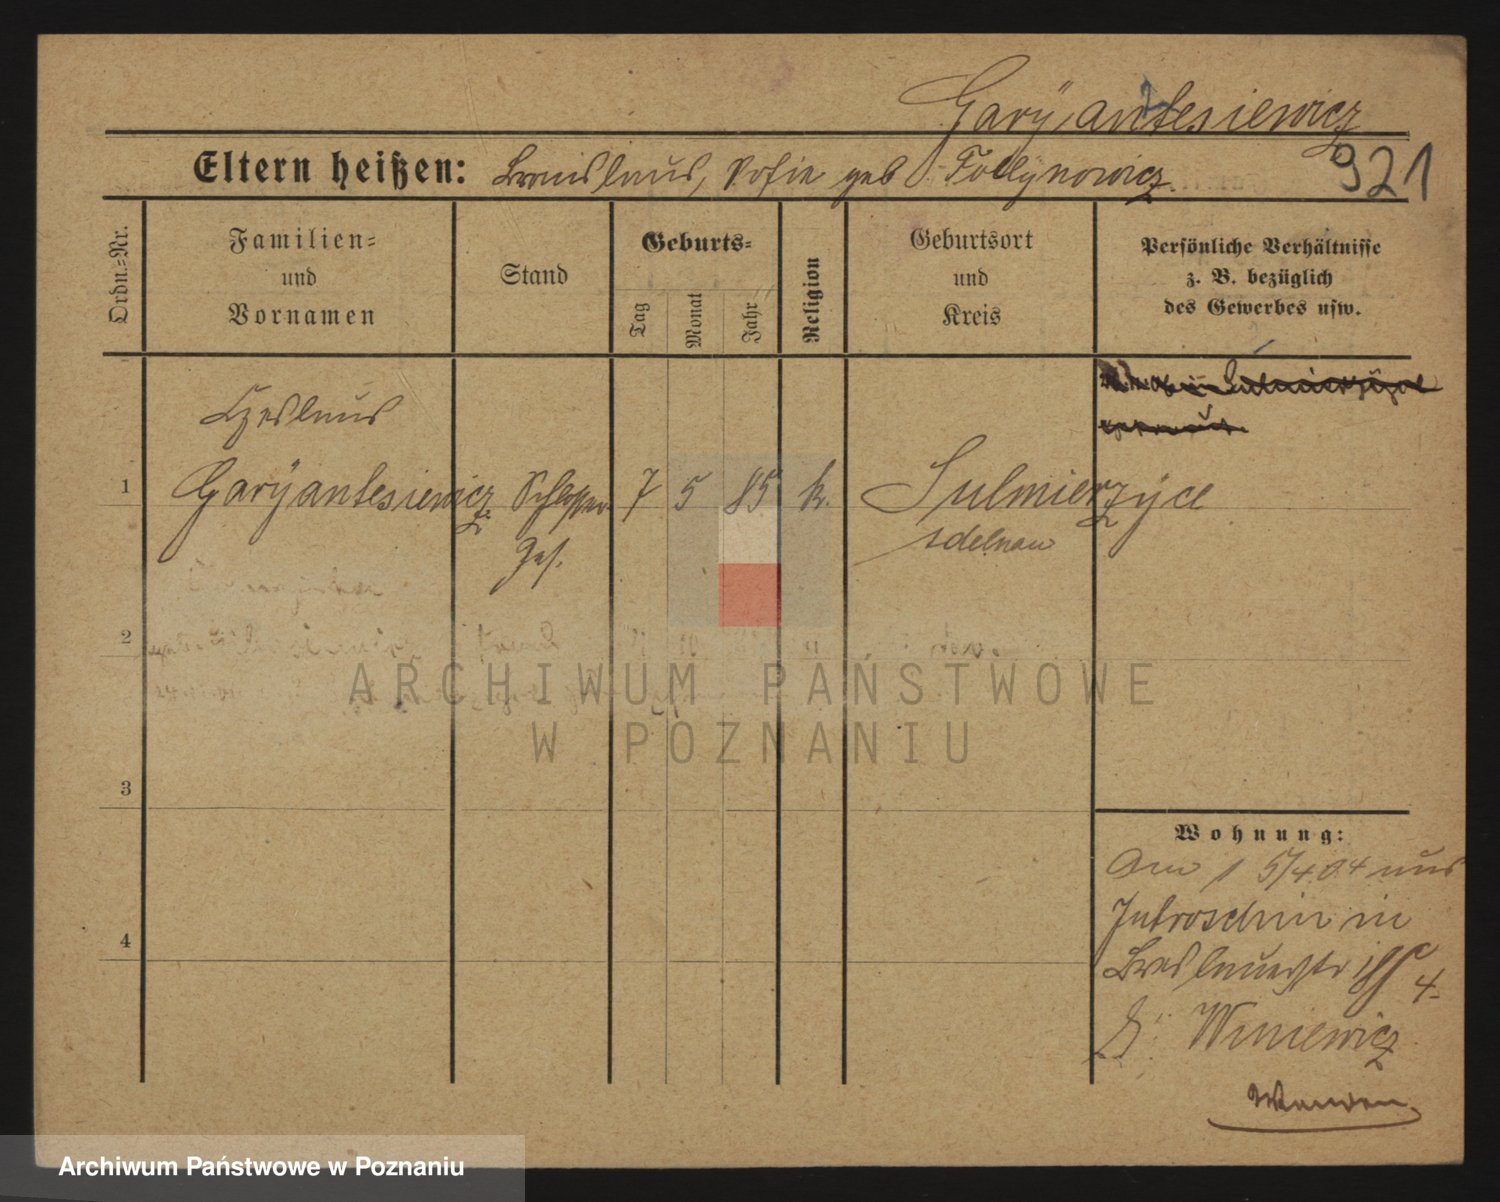 Garÿantesiewicz
Eltern heißen: Bronislaus, Sofie geb Follynowicz.
921
Ordn.-Nr.
Familien-
und
Vornamen
Stand
Geburts-
Tag
Monat
Jahr
Religion
Geburtsort
und
Kreis
Persönliche Verhältnisse
z. B. bezüglich
des Gewerbes usw.
Czeslaus
1 Garÿantesiewicz Schlosser 7 5 85 k. Sulmierzÿce
Ges. Adelnau
2
3
4
Wohnung:
Am 15/4 04 aus
Jutroschin in
Breslauerstr
4
b. Winiewicz
ARCHIWUM PAŃSTWOWE
W POZNANIU
Archiwum Państwowe w Poznaniu